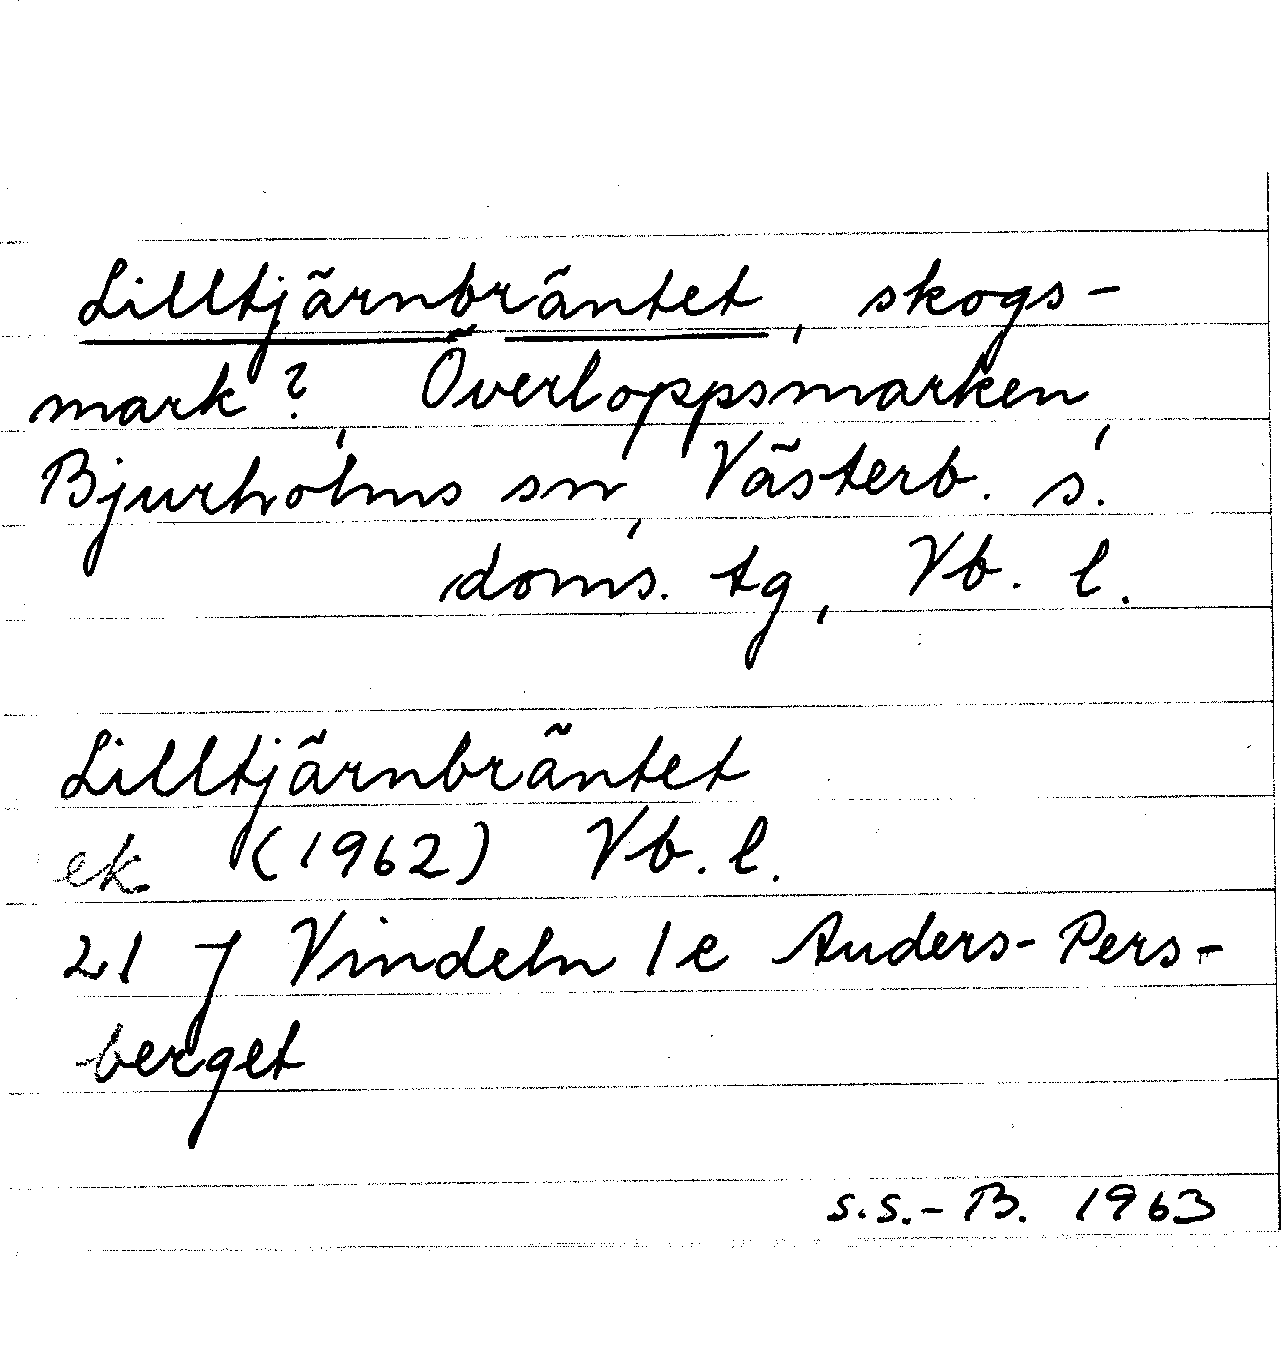 Lilltjärnbräntet, skogs-
mark?, Överloppsmarken,
Bjurholms sn, Västerb. s.
doms. tg, Vb. l.
Lilltjärnbräntet
ek. (1962) Vb. l.
21 J Vindeln 1 e Anders-Pers-
berget
S.S.-B. 1963